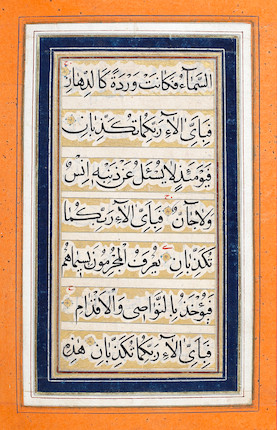 السَّمَآءُ فَكَانَتْ وَرْدَةً كَالدِّهَانِ
فَبِاَىِّ اٰلَآءِ رَبِّكُمَا تُكَذِّبَانِ
فَيَوْمَئِذٍ لَا يُسْئَلُ عَنْ ذَنْبِهٖ اِنْسٌ
وَلَا جَانٌّ فَبِاَىِّ اٰلَآءِ رَبِّكُمَا
تُكَذِّبَانِ يُعْرَفُ الْمُجْرِمُونَ بِسِيمَاهُمْ
فَيُؤْخَذُ بِالنَّوَاصِى وَالْاَقْدَامِ
فَبِاَىِّ اٰلَآءِ رَبِّكُمَا تُكَذِّبَانِ هٰذِهٖ